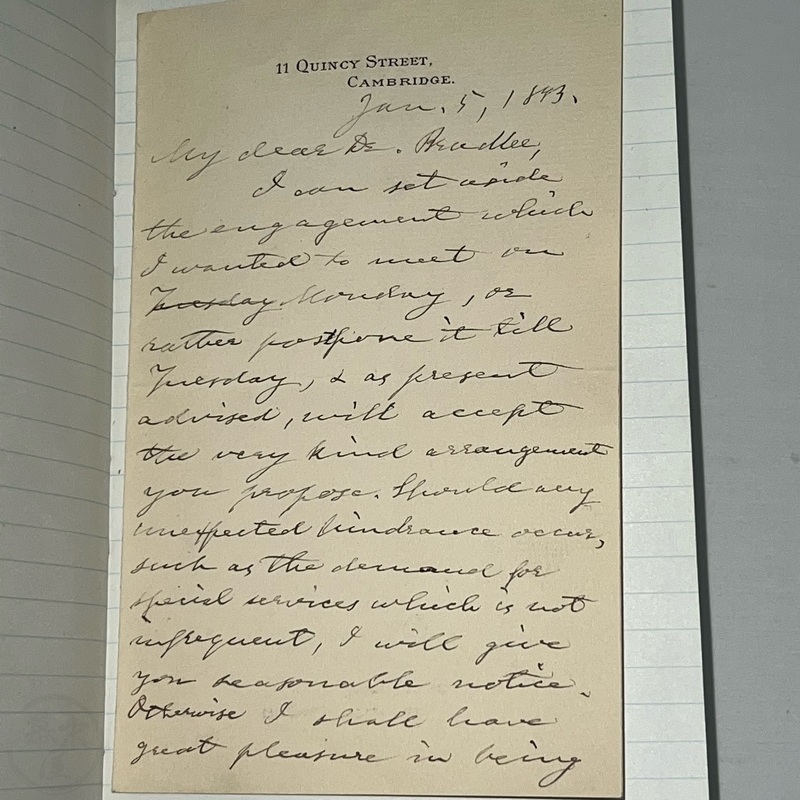 11 QUINCY STREET,
CAMBRIDGE.
Jan. 5, 1893.
My dear Dr. Bradlee,
I can set aside
the engagement which
I wanted to meet on
Tuesday Monday, or
rather postpone it till
Tuesday, & as present
advised, will accept
the very kind arrangement
you propose. Should any
unexpected hindrance occur,
such as the demand for
special services which is not
infrequent, I will give
you seasonable notice.
Otherwise I shall have
great pleasure in being